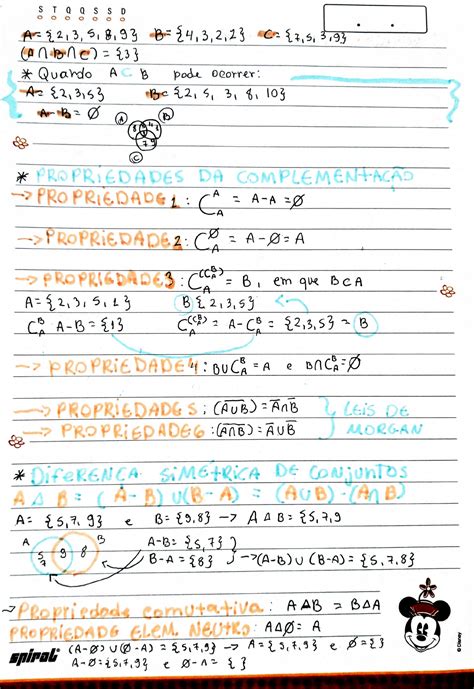 S T Q Q S S D
A={2,3,5,8,9} B={4,3,2,1} C={7,5,3,9}
(A∩B∩C) = {3}
* Quando A⊂B pode ocorrer:
A={2,3,5} B={2, 5, 3, 8, 10}
A-B=∅
A B
C
* PROPRIEDADES DA COMPLEMENTAÇÃO
→PROPRIEDADE 1: C_A^A = A-A=∅
→PROPRIEDADE 2: C_A^∅ = A-∅=A
→PROPRIEDADE 3: C_A^(C_A^B) = B, em que B⊂A
A={2,3,5,1} B{2,3,5}
C_A^B A-B={1} C_A^(C_A^B) = A-C_A^B = {2,3,5} = B
→PROPRIEDADE 4: B∪C_A^B=A e B∩C_A^B=∅
→PROPRIEDADE 5: (A̅∪̅B̅)=A̅∩B̅
→PROPRIEDADE 6: (A̅∩̅B̅)=A̅∪B̅
LEIS DE
MORGAN
* DIFERENÇA SIMÉTRICA DE CONJUNTOS
A Δ B = (A-B)∪(B-A) = (A∪B)-(A∩B)
A= {5,7,9} e B={9,8} → A Δ B={5,7,9
A B
5 7 9 8
A-B={5,7}
B-A={8} →(A-B)∪(B-A)={5,7,8}
→Propriedade comutativa: AΔB = BΔA
PROPRIEDADE ELEM. NEUTRO: AΔ∅= A
(A-∅)∪(∅-A)={5,7,9} → A={5,7,9} e ∅={}
A-∅={5,7,9} e ∅-A={ }
spiral
© Disney